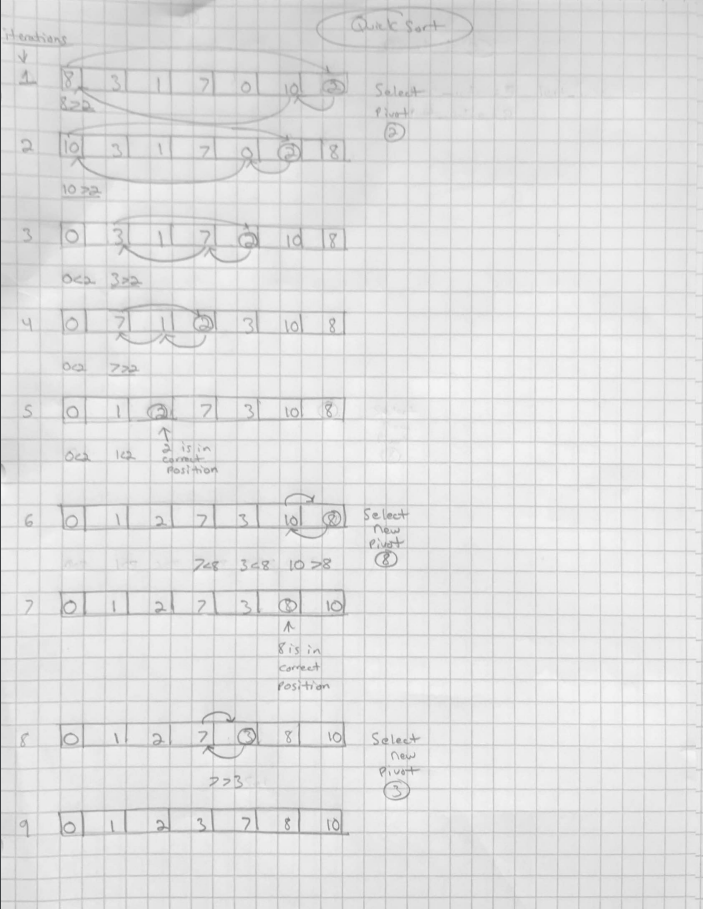 Quick Sort
iterations
1 8 3 1 7 0 10 2
8>2
Select
Pivot
2
2 10 3 1 7 0 2 8
10>2
3 0 3 1 7 2 10 8
0<2 3>2
4 0 7 1 2 3 10 8
0<2 7>2
5 0 1 2 7 3 10 8
0<2 1<2
2 is in
correct
Position
6 0 1 2 7 3 10 8
Select
new
Pivot
8
7<8 3<8 10>8
7 0 1 2 7 3 8 10
8 is in
correct
Position
8 0 1 2 7 3 8 10
Select
new
Pivot
3
7>3
9 0 1 2 3 7 8 10